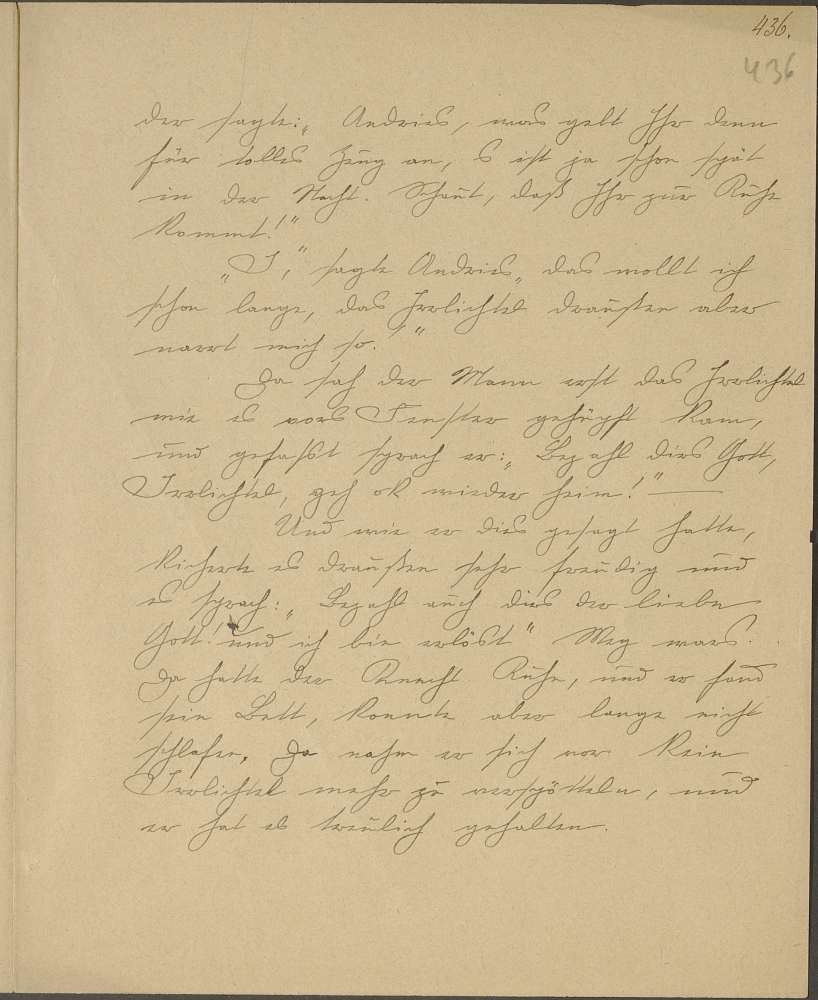 436.
436
der sagte: „Andries, was gebt Ihr denn
für tolles Zeug an, 's ist ja schon spät
in der Nacht. Schaut, daß Ihr zur Ruhe
kommt!"
„I," sagte Andries, „das wollt ich
schon lange, das Irrlichtel draußen aber
narrt mich so."
Da sah der Mann erst das Irrlichtel
wie es vors Fenster gehüpft kam,
und gefaßt sprach er: „Bezahl dirs Gott,
Irrlichtel, geh ok wieder heim!" —
Und wie er dies gesagt hatte,
kicherte es draußen sehr freudig und
es sprach: „Bezahl auch dirs der liebe
Gott! und ich bin erlöst" Weg wars.
Da hatte der Knecht Ruhe, und er fand
sein Bett, konnte aber lange nicht
schlafen. Da nahm er sich vor kein
Irrlichtel mehr zu verspötteln, und
er hat es treulich gehalten.